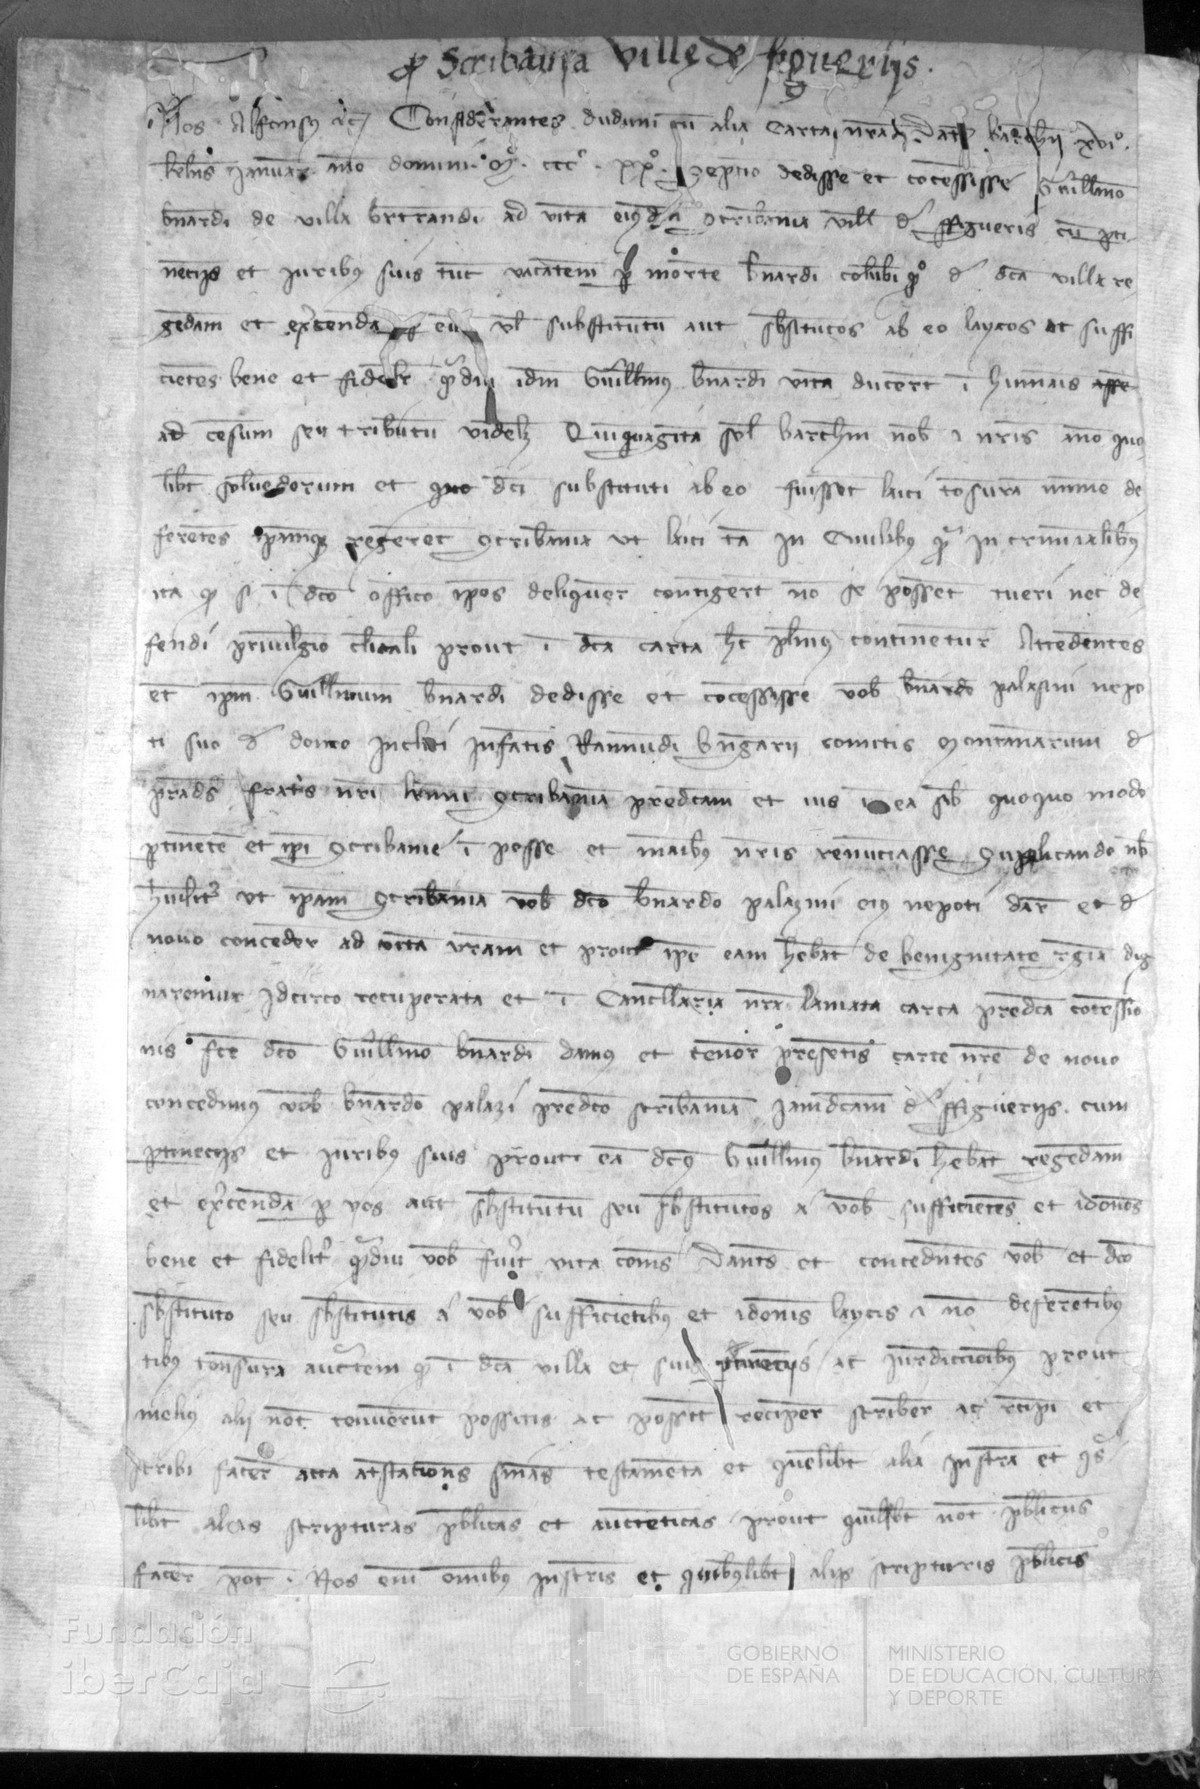 Scribania Ville de figueriis.
Nos Alfonsus etc Considerantes dudum cum alia Carta nostra Dat barchn xvi°
kalendas Januar anno domini M° ccc° xx° septimo dedisse et concessisse Guillmo
bnardi de villa bertrandi ad vitam eiusdem scribania ville de ffigueriis cum pti
nenciis et iuribus suis tunc vacantem p mortem bnardi columbi de dca villa re
gendam et exercendam p eum vel substitutum aut substitutos ab eo laycos et suffi
cientes bene et fideliter qmdiu idem Guillmus bnardi vitam duceret in humanis
ad censum seu tributum videlz Quinquaginta sol barchn nob et nris anno quo
libet solvendorum et quod dci substituti ab eo fuissent laici tonsuram minime de
ferentes ipamque regerent scribaniam ut laici tam in Civilibus qm in criminalibus
ita qd si in dco officio ipos delinquere contigerit non se possent tueri nec de
fendi privilegio clicali prout in dca carta hec plenius continetur Attendentes
et ipm Guillmum bnardi dedisse et concessisse vob bnardo palasini nepo
ti suo de domo incliti Infantis Raimundi bngarii comitis montanarum de
prads fratris nri krmi scribaniam predcam et ius in ea sib quoquo modo
ptinentem et ipi scribanie in posse et manibus nris renunciasse supplicando nob
humilit ut ipam scribaniam vob dco bnardo palazini eius nepoti dare et de
novo concedere ad vitam vram et prout ipe eam hebat de benignitate regia dig
naremur Idcirco recuperata et in Cancellaria nra laniata carta predca concessio
nis fce dco Guillmo bnardi damus et tenore presentis carte nre de novo
concedimus vob bnardo palazi predco scribaniam iamdcam de ffigueriis cum
ptinenciis et iuribus suis prout eam dcus Guillmus bnardi hebat regendam
et exercendam p vos aut substitutum seu substitutos a vob sufficientes et idoneos
bene et fidelit qmdiu vob fuit vita comes Dantes et concedentes vob et dco
substituto seu substitutis a vob sufficientibus et idoneis laycis et non deferentibus
tibus tonsuram auctem qd in dca villa et suis ptinenciis ac Jurdiccionibus prout
melius alii not tenuerunt possitis ac possint recipere scribere ac recipi et
scribi facere acta atestationes sinas testamenta et quelibet alia instra et qas
libet alias scripturas pblicas et auctenticas prout quilibet not pblicus
facere potest Nos enim omnibus instris et quibuslibet aliis scripturis pblicis
Fundación
iberCaja
GOBIERNO
DE ESPAÑA
MINISTERIO
DE EDUCACIÓN, CULTURA
Y DEPORTE